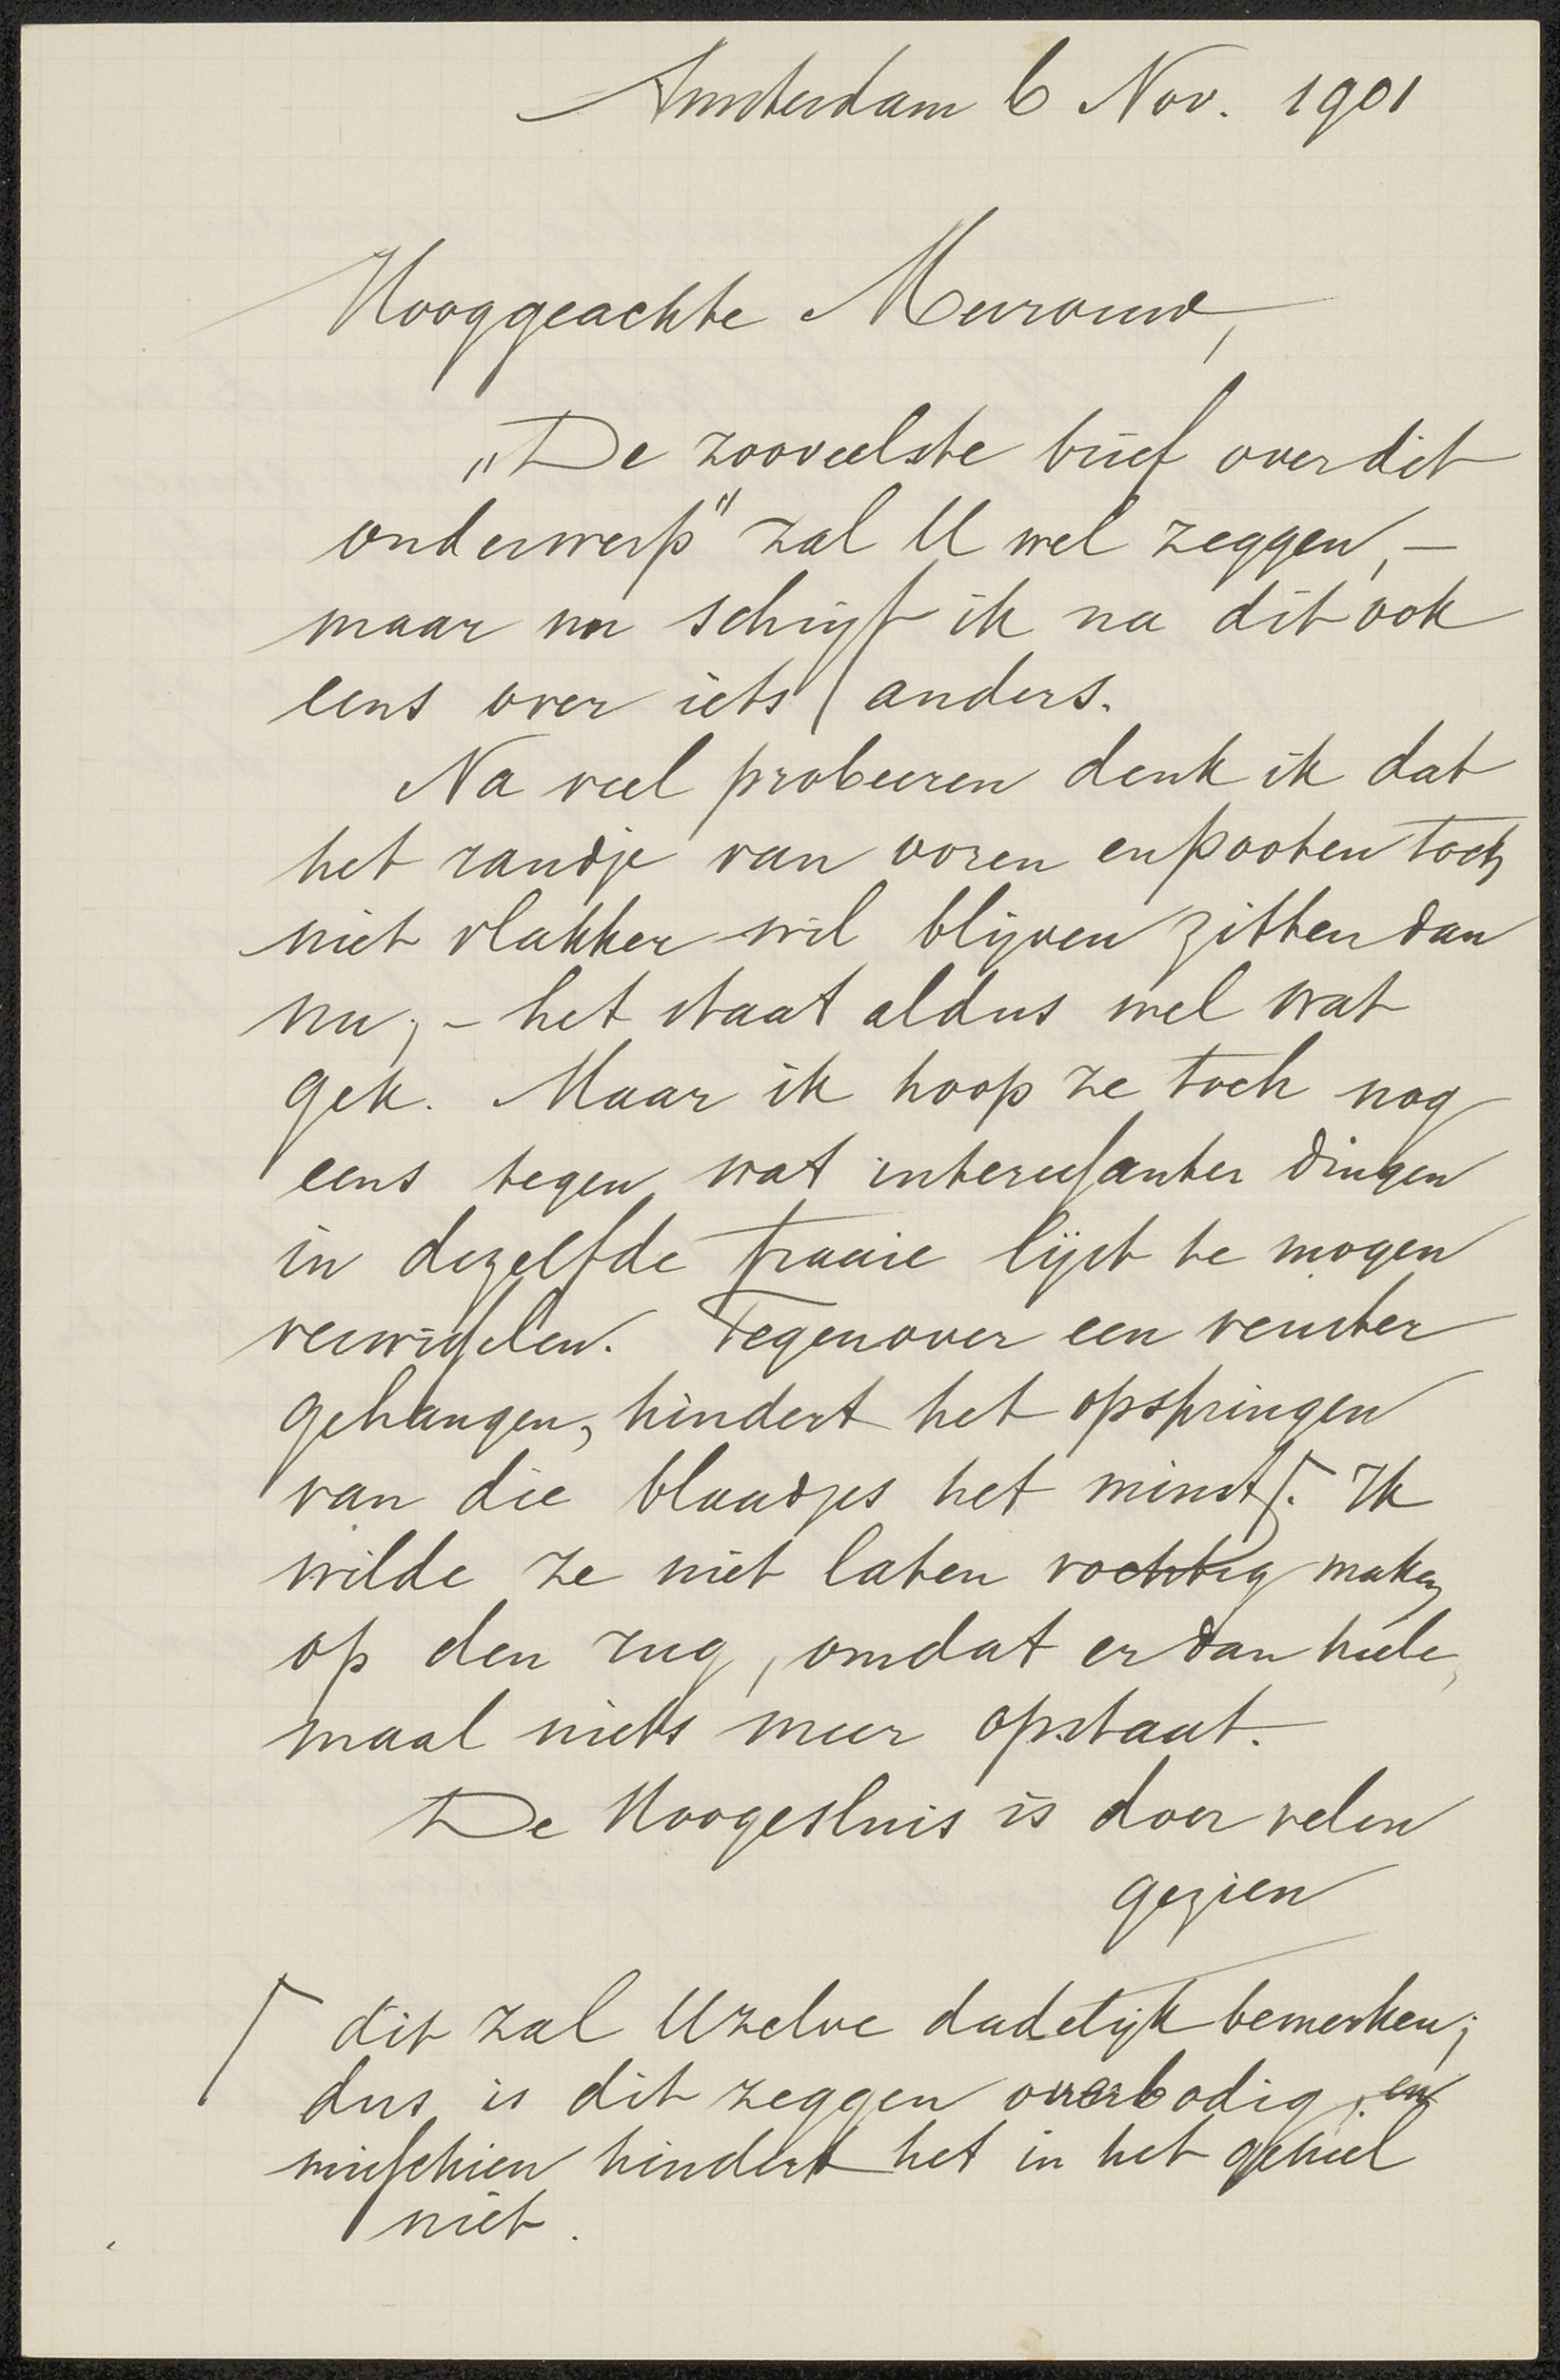 Amsterdam 6 Nov. 1901
Hooggeachte Mevrouw,
„De zooveelste brief over dit
onderwerp" zal U wel zeggen, —
maar nu schrijf ik na dit ook
eens over iets anders.
Na veel probeeren denk ik dat
het randje van ooren en pooten toch
niet vlakker wil blijven zitten dan
nu; – het staat aldus wel wat
gek. Maar ik hoop ze toch nog
eens tegen wat interessanter dingen
in dezelfde fraaie lijst te mogen
verwisselen. Tegenover een venster
gehangen, hindert het opspringen
van die blaadjes het minst⌈. Ik
wilde ze niet laten vochtig maken
op den rug, omdat er dan heele
maal niets meer opstaat.
De Hoogesluis is door velen
gezien
⌈ dit zal Uzelve dadelijk bemerken;
dus is dit zeggen overbodig, en
misschien hindert het in het geheel
niet.